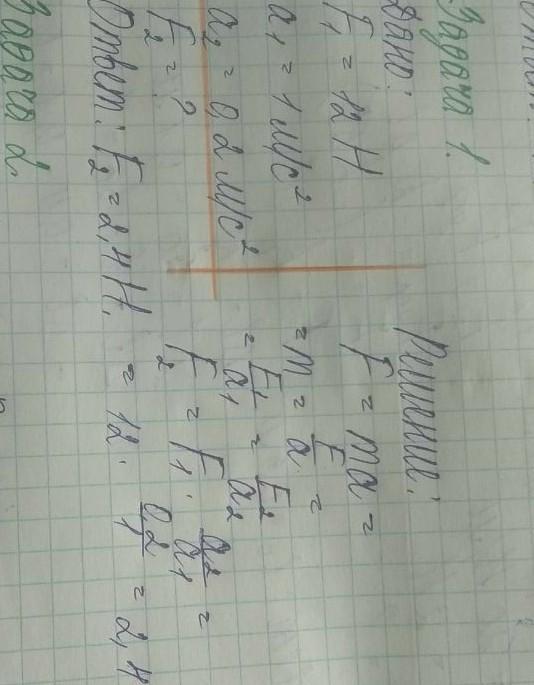 Задача 1.
Дано:
F₁ = 12 Н
a₁ = 1 м/с²
a₂ = 0,2 м/с²
F₂ = ?
Решение:
F = ma =
= m = F/a =
= F₁/a₁ = F₂/a₂
F₂ = F₁ · a₂/a₁ =
= 12 · 0,2/1 = 2,4
Ответ: F₂ = 2,4 Н.
Задача 2.